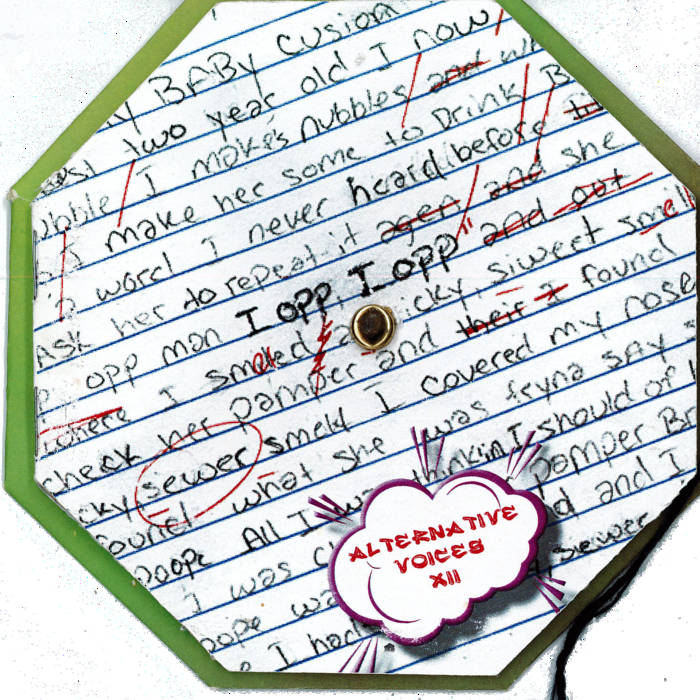 Y BABY Cusion
last two year old I now
bubble I makes nubbles and
I make her some to Drink B
word I never heard before
Ask her to repeat it agen and she
opp man I opp I opp" and out
where I smeled icky, siweet smell
check her pamper and their I found
icky sewer smell I covered my nose
found what she was tryna say
poope All I was thinkin I should of
I was pamper Br
poope wa and I
I had sewer
ALTERNATIVE
VOICES
XII